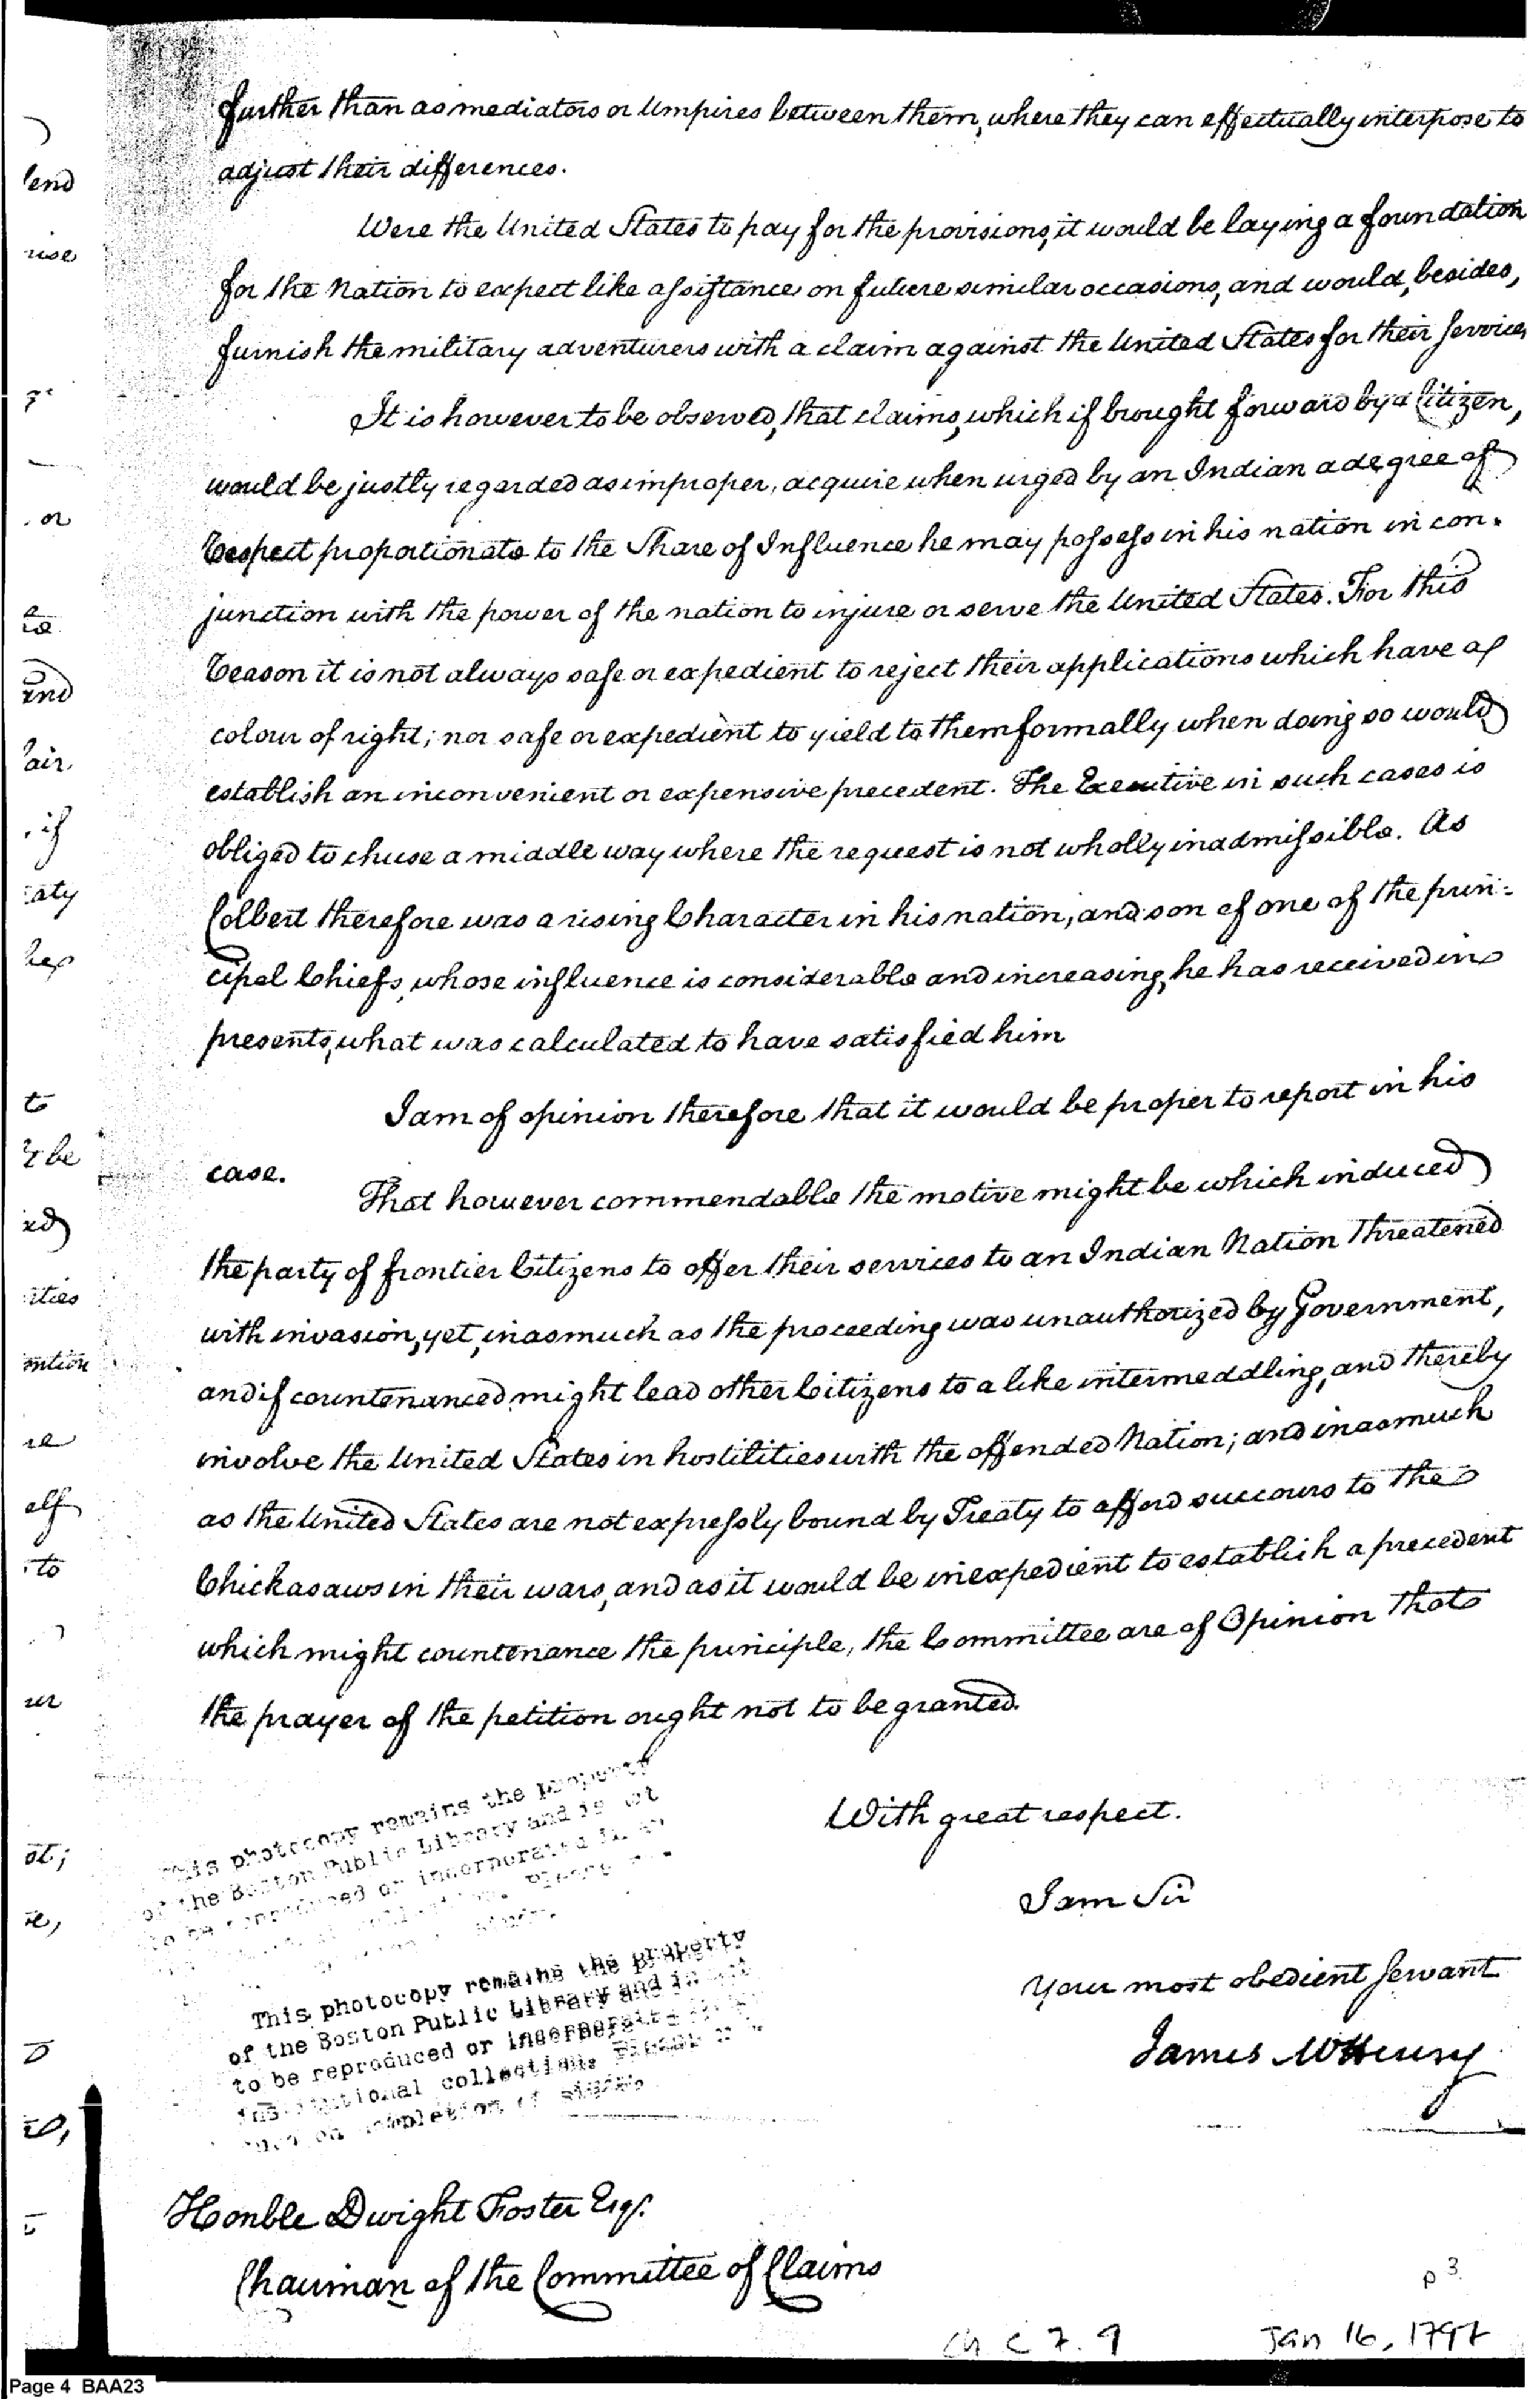 further than as mediators or Umpires between them, where they can effectually interpose to
adjust their differences.
Were the United States to pay for the provisions, it would be laying a foundation
for the Nation to expect like assistance on future similar occasions, and would, besides,
furnish the military adventurers with a claim against the United States for their services
It is however to be observed, that claims, which if brought forward by a Citizen,
would be justly regarded as improper, acquire when urged by an Indian a degree of
respect proportionate to the Share of Influence he may possess in his nation in con-
junction with the power of the nation to injure or serve the United States. For this
reason it is not always safe or expedient to reject their applications which have a
colour of right; nor safe or expedient to yield to them formally when doing so would
establish an inconvenient or expensive precedent. The Executive in such cases is
obliged to chuse a middle way where the request is not wholly inadmissible. As
Colbert therefore was a rising Character in his nation, and son of one of the prin-
cipal Chiefs, whose influence is considerable and increasing, he has received in
presents, what was calculated to have satisfied him
I am of opinion therefore that it would be proper to report in his
case.
That however commendable the motive might be which induced
the party of frontier Citizens to offer their services to an Indian Nation threatened
with invasion, yet, inasmuch as the proceeding was unauthorized by Government,
and if countenanced might lead other Citizens to a like intermeddling, and thereby
involve the United States in hostilities with the offended Nation; and inasmuch
as the United States are not expressly bound by Treaty to afford succours to the
Chickasaws in their wars, and as it would be inexpedient to establish a precedent
which might countenance the principle, the Committee are of Opinion that
the prayer of the petition ought not to be granted.
This photocopy remains the property
of the Boston Public Library and is not
to be reproduced or incorporated in
With great respect.
I am Sir
Your most obedient servant
James McHenry
This photocopy remains the property
of the Boston Public Library and is not
to be reproduced or incorporated
institutional collections
completion of
Honble Dwight Foster Esqr.
Chairman of the Committee of Claims
p 3
Ch C 7. 9 Jan 16, 1797
Page 4 BAA23